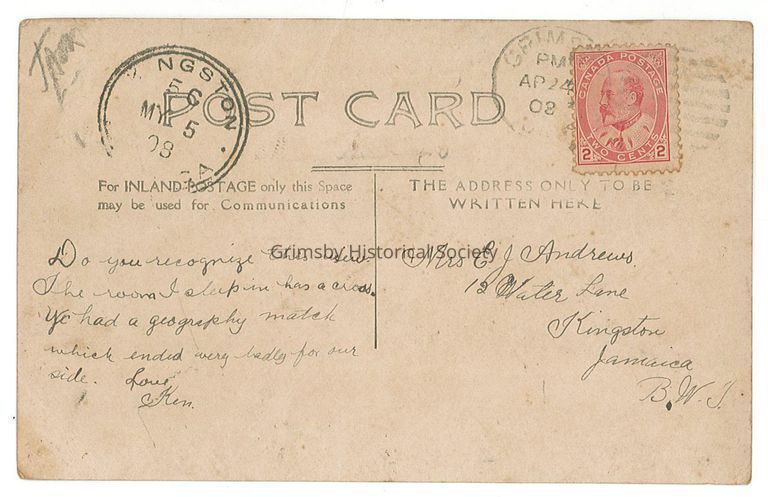 NGSTON
56
MY 5
08
JA
GRIMS
PM
AP 24
08
CANADA POSTAGE
2 TWO CENTS 2
POST CARD
For INLAND POSTAGE only this Space
may be used for Communications
THE ADDRESS ONLY TO BE
WRITTEN HERE
Grimsby Historical Society
Do you recognize this view
The room I sleep in has a cross.
We had a geography match
which ended very badly for our
side. Love
Ken.
Mrs E J Andrews.
12 Water Lane
Kingston
Jamaica
B.W.I.